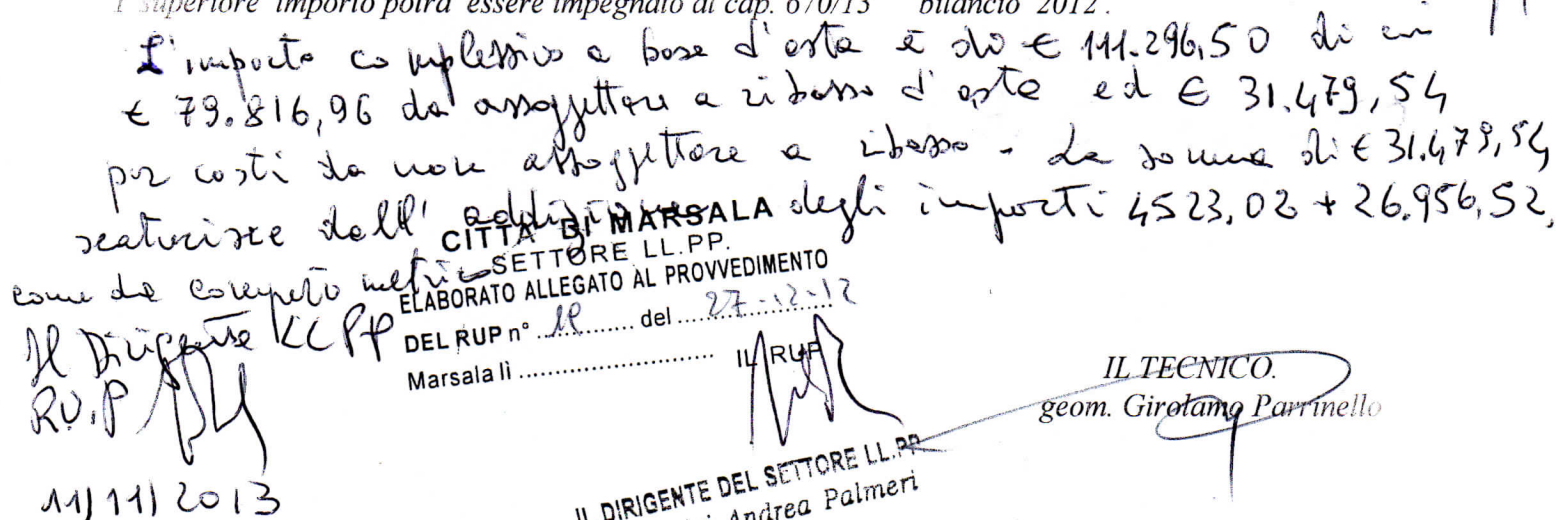 l' superiore importo potrà essere impegnato al cap. 670/13 bilancio 2012.
L'importo complessivo a base d'asta è di € 111.296,50 di cui
€ 79.816,96 da assoggettare a ribasso d'asta ed € 31.479,54
per costi da non assoggettare a ribasso - La somma di € 31.479,54
scaturisce dall' addizione degli importi 4523,02 + 26.956,52,
come da computo metrico
CITTA' DI MARSALA
SETTORE LL.PP.
ELABORATO ALLEGATO AL PROVVEDIMENTO
DEL RUP n° ............ del 27-12-12
Marsala lì ............................ IL RUP
Il Dirigente LLPP
RU.P
11/11/2013
IL TECNICO.
geom. Girolamo Parrinello
IL DIRIGENTE DEL SETTORE LL.PP
Andrea Palmeri